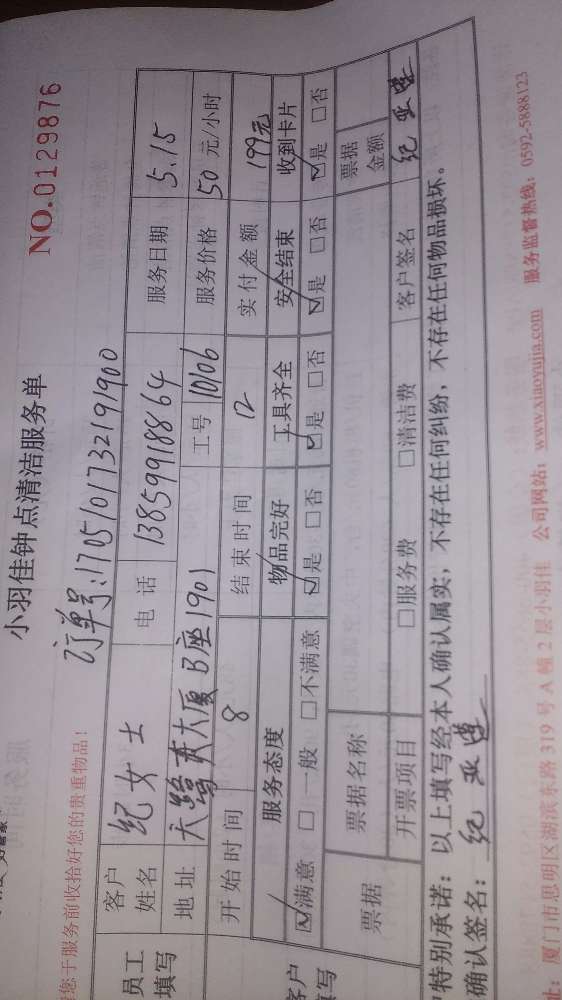 小羽佳钟点清洁服务单
NO.0129876
订单号:170510173219190​0
您于服务前收拾好您的贵重物品!
员工填写
客户姓名 纪女士 电话 13859918864 服务日期 5.15
地址 天鹭大厦B座1901 工号 10106 服务价格 50元/小时
开始时间 8 结束时间 12 实付金额 199元
服务态度 物品完好 工具齐全 安全结束 收到卡片
☑满意 □一般 □不满意 ☑是 □否 ☑是 □否 ☑是 □否 ☑是 □否
票据 票据名称 票据金额
开票项目 □服务费 □清洁费 客户签名 纪亚莲
特别承诺:以上填写经本人确认属实,不存在任何纠纷,不存在任何物品损坏。
确认签名:纪亚莲
厦门市思明区湖滨东路319号A幢2层小羽佳 公司网站:www.xiaoyujia.com 服务监督热线:0592-5888123